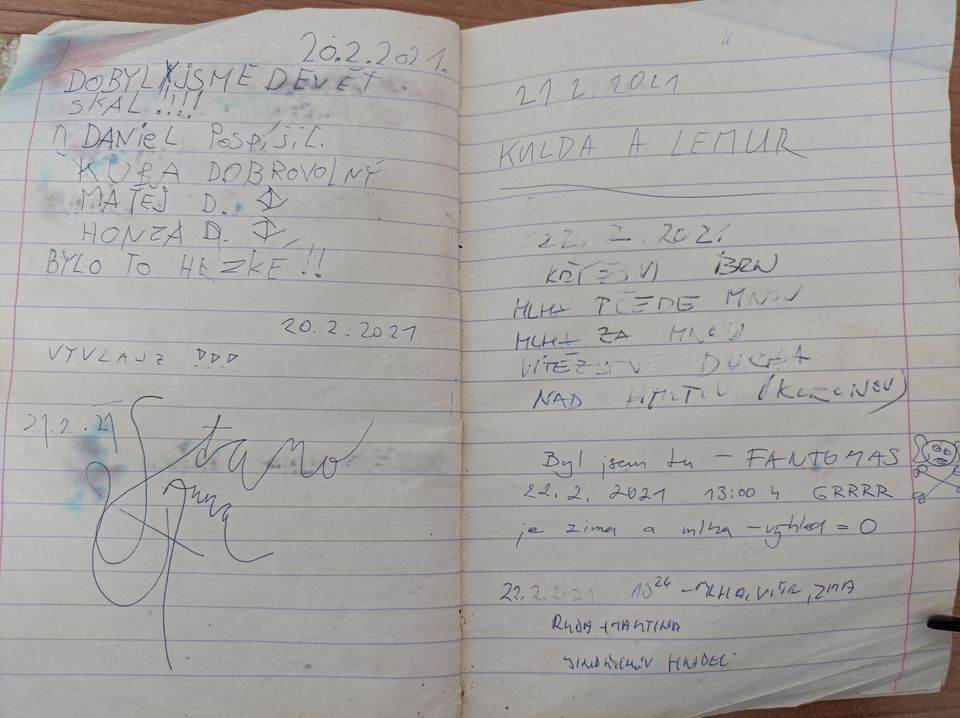 20.2.2021.
DOBYLI JSME DEVĚT
SKAL!!!!
DANIEL POSPÍŠIL.
KUBA DOBROVOLNÝ
MATĚJ D.
HONZA D.
BYLO TO HEZKÉ!!
20.2.2021
21.2.21
Stano
Anna
21.2.2021
KULDA A LEMUR
22.2.2021
BRN
MLHA PŘEDE MNOU
MLHA ZA MNOU
VÍTĚZSTVÍ DUCHA
NAD HMOTOU
Byl jsem tu - FANTOMAS
22.2. 2021 13:00 h GRRRR
je zima a mlha - výhled = 0
22.2.2021 13 24 - MLHA, VÍTR, ZIMA
RUDA + MARTINA
JINDŘICHŮV HRADEC